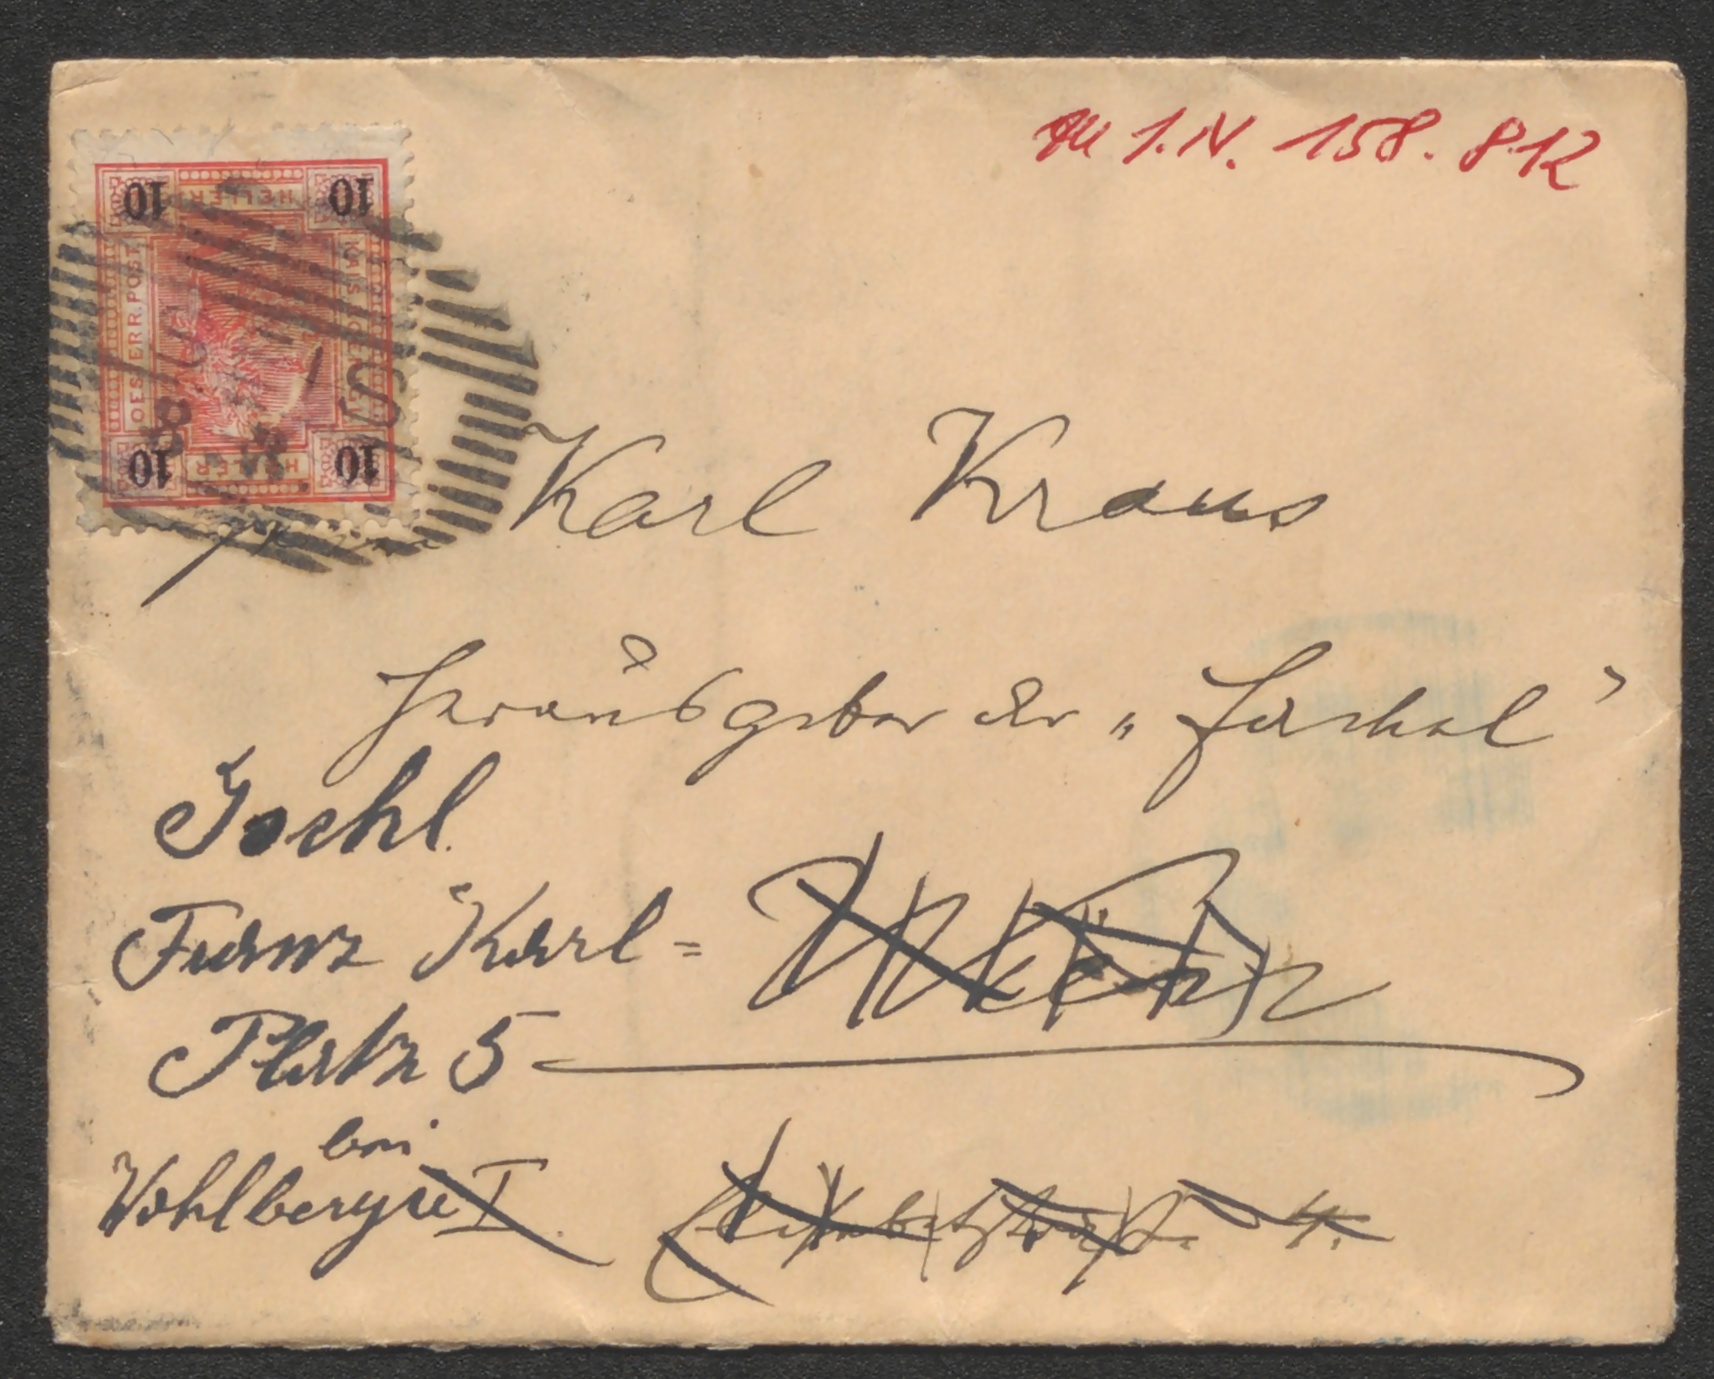 H I.N. 158.812
10 HELLER 10
KAIS. KOENIGL.
OESTERR. POST
10 HELLER 10
Karl Kraus
Herausgeber der „Fackel"
Ischl
Franz Karl=
Platz 5
bei
Wohlberger
Wien
I. Elisabethstraße 4.